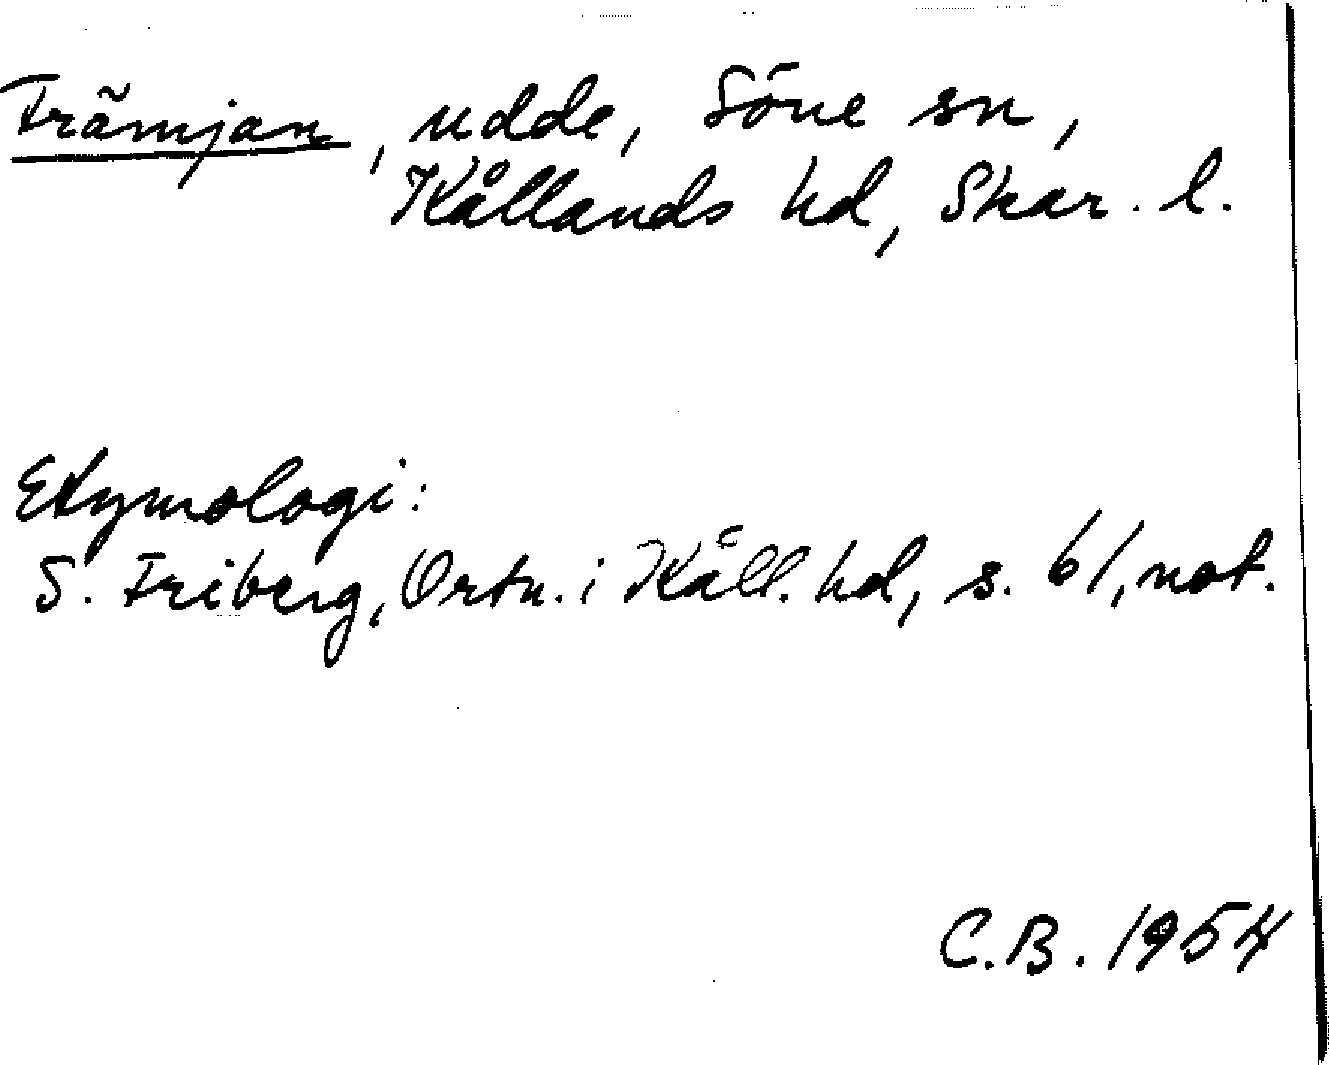 Främjan, udde, Söne sn,
Kållands hd, Skar. l.
Etymologi:
S. Friberg, Ortn. i Kåll. hd, s. 61, not.
C.B. 1954